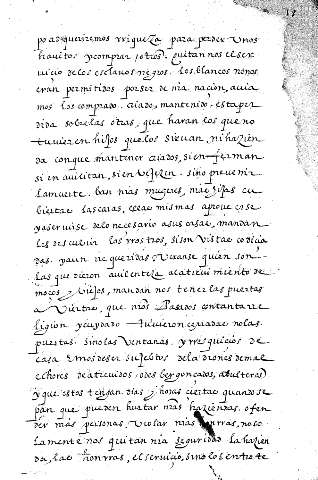 17
po adquiremos rriqueza para perder Unos
hauitos y comprar otros. quitan nos el ser
uicio de los esclauos negros. los blancos no nos
eran permitidos por ser de nra nacion, auia
mos los comprado. criado, mantenido. esta per
dida sobre las otras, que haran los que no
tuuieren hijos que los siruan, ni hazien
da con que mantener criados, si enferman
si en
la muerte. ban nras mugeres, nras hijas cu
biertas las caras, ellas mismas a prouerse
y a seruirse de lo necesario a sus casas, mandan
les descubrir los rrostros, si son vistas codicia
das. y aun rrequeridas Verase quien son
las que dieron al atreuimiento de
moços y Viejos, mandan nos tener las puertas
auiertas, que nros Pasados con tanta rre
ligion y cuydado tuuieron cerradas no las
puertas. sino las Ventanas. y rresquicios de
casa. Emos de ser sujebtos de ladrones de mal
echores de atreuidos. desbergonçados, adulteros
y que estos tengan. dias y horas ciertas quando se
pan que pueden hurtar nras haziendas. ofen
der nras personas. Violar nras honrras, no so
la mente nos quitan nra seguridad la hazien
da, las honrras, el seruicio, sino los entrete